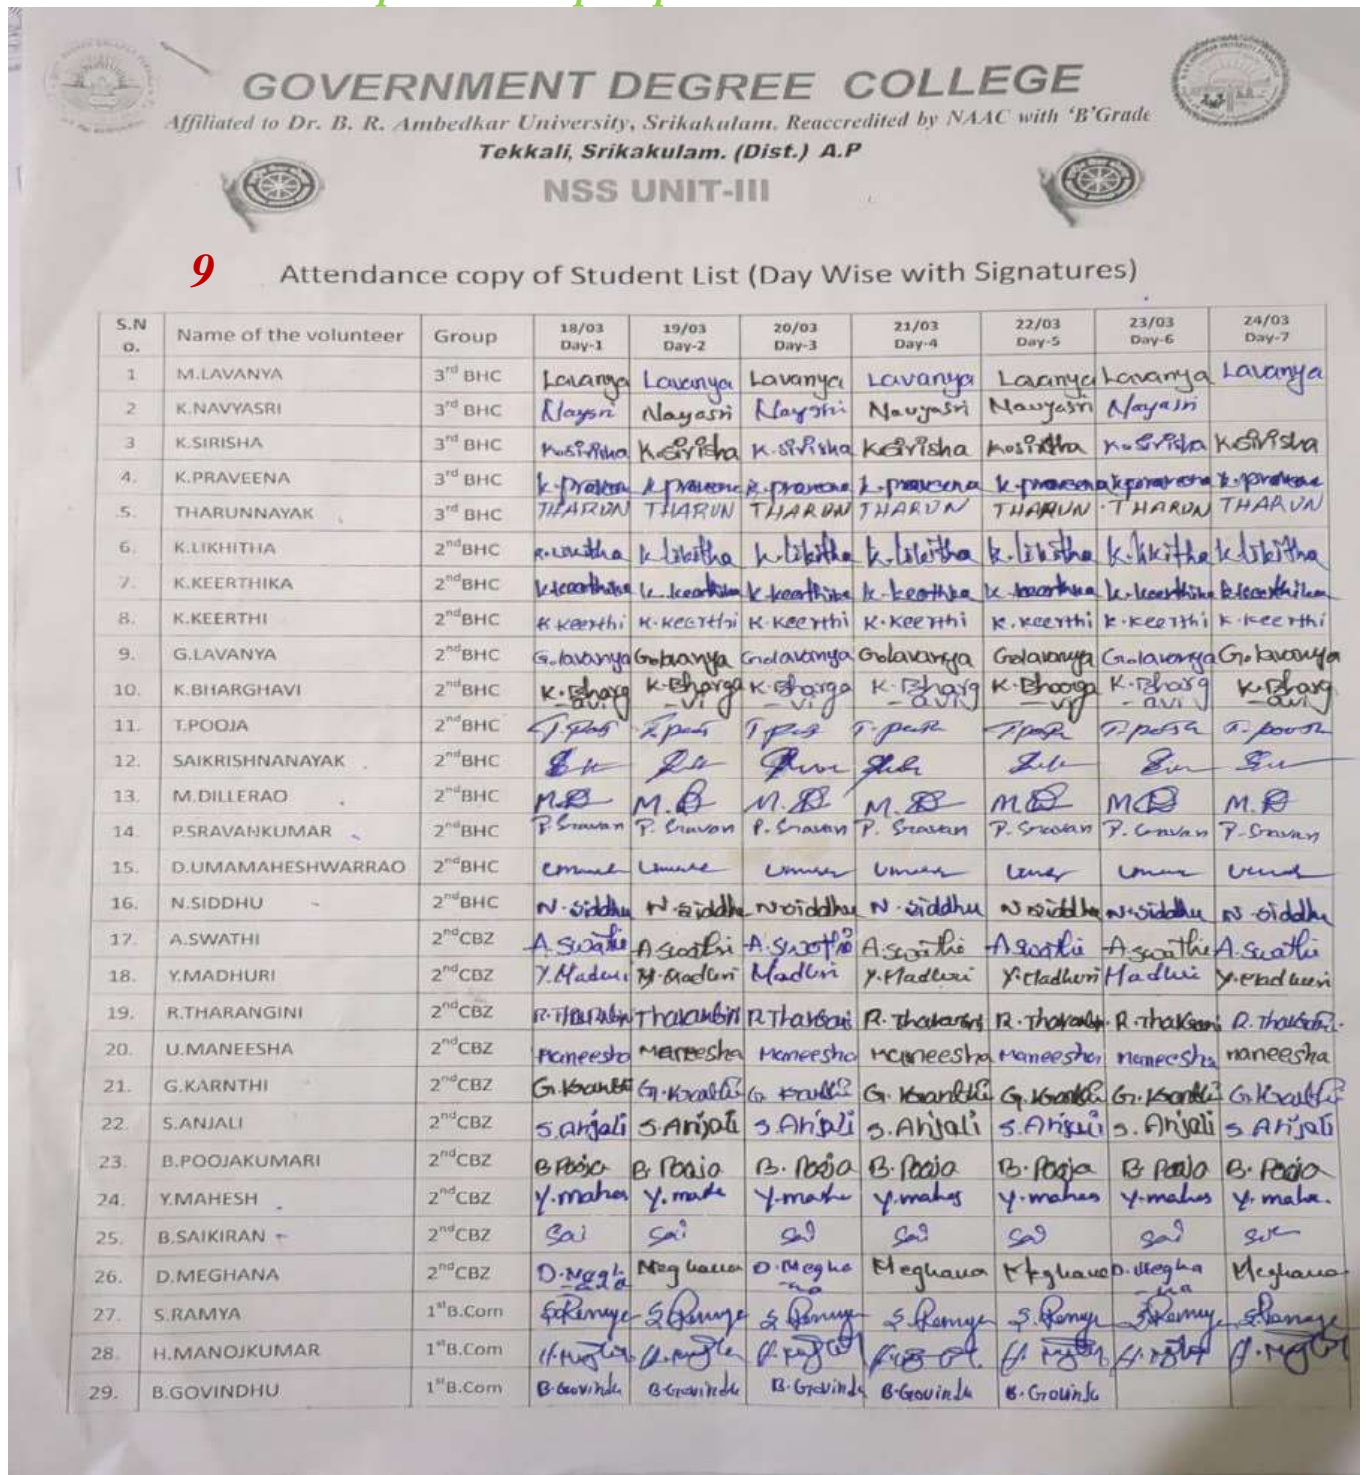 GOVERNMENT DEGREE COLLEGE
Affiliated to Dr. B. R. Ambedkar University, Srikakulam. Reaccredited by NAAC with 'B'Grade
Tekkali, Srikakulam. (Dist.) A.P
NSS UNIT-III
9 Attendance copy of Student List (Day Wise with Signatures)
S.No. Name of the volunteer Group 18/03 Day-1 19/03 Day-2 20/03 Day-3 21/03 Day-4 22/03 Day-5 23/03 Day-6 24/03 Day-7
1 M.LAVANYA 3rd BHC Lavanya Lavanya Lavanya Lavanya Lavanya Lavanya Lavanya
2 K.NAVYASRI 3rd BHC Nayasri Navyasri Navyasri Nayasri
3 K.SIRISHA 3rd BHC K.Sirisha K.Sirisha K.Sirisha K.Sirisha K.Sirisha K.Sirisha
4. K.PRAVEENA 3rd BHC K.praveena K.praveena K.praveena K.praveena
5. THARUNNAYAK 3rd BHC THARUN THARUN THARUN THARUN THARUN THARUN THARUN
6. K.LIKHITHA 2ndBHC K.likitha K.likitha K.likitha K.likitha K.likitha K.likitha K.likitha
7. K.KEERTHIKA 2ndBHC K.keerthika K.keerthika K.keerthika K.keerthika K.keerthika
8. K.KEERTHI 2ndBHC K.Keerthi K.Keerthi K.Keerthi K.Keerthi K.Keerthi K.Keerthi K.Keerthi
9. G.LAVANYA 2ndBHC G.lavanya G.lavanya G.lavanya G.lavanya G.lavanya G.lavanya G.lavanya
10. K.BHARGHAVI 2ndBHC K.Bhargavi K.Bhargavi K.Bhargavi K.Bhargavi K.Bhargavi K.Bhargavi
11. T.POOJA 2ndBHC
12. SAIKRISHNANAYAK 2ndBHC
13. M.DILLERAO 2ndBHC
14. P.SRAVANKUMAR 2ndBHC P.Sravan P.Sravan P.Sravan P.Sravan P.Sravan P.Sravan P.Sravan
15. D.UMAMAHESHWARRAO 2ndBHC
16. N.SIDDHU 2ndBHC N.siddhu N.siddhu N.siddhu N.siddhu N.siddhu N.siddhu N.siddhu
17. A.SWATHI 2ndCBZ A.Swathi A.Swathi A.Swathi A.Swathi A.Swathi A.Swathi A.Swathi
18. Y.MADHURI 2ndCBZ Y.Madhuri Y.Madhuri Madhuri Y.Madhuri Y.Madhuri Madhuri Y.Madhuri
19. R.THARANGINI 2ndCBZ
20. U.MANEESHA 2ndCBZ Maneesha Maneesha Maneesha Maneesha Maneesha maneesha maneesha
21. G.KARNTHI 2ndCBZ G.Kranthi G.Kranthi G.Kranthi G.Kranthi G.Kranthi G.Kranthi G.Kranthi
22. S.ANJALI 2ndCBZ S.anjali S.Anjali S.Anjali S.Anjali S.Anjali S.Anjali S.Anjali
23. B.POOJAKUMARI 2ndCBZ B.Pooja B.Pooja B.Pooja B.Pooja B.Pooja B.Pooja B.Pooja
24. Y.MAHESH 2ndCBZ Y.mahes Y.mahes Y.mahes Y.mahes
25. B.SAIKIRAN 2ndCBZ Sai Sai Sai Sai Sai Sai
26. D.MEGHANA 2ndCBZ D.Meghana Meghana D.Meghana Meghana Meghana D.Meghana Meghana
27. S.RAMYA 1stB.Com S.Ramya S.Ramya S.Ramya S.Ramya S.Ramya S.Ramya S.Ramya
28. H.MANOJKUMAR 1stB.Com
29. B.GOVINDHU 1stB.Com B.Govindu B.Govindu B.Govindu B.Govindu B.Govindu